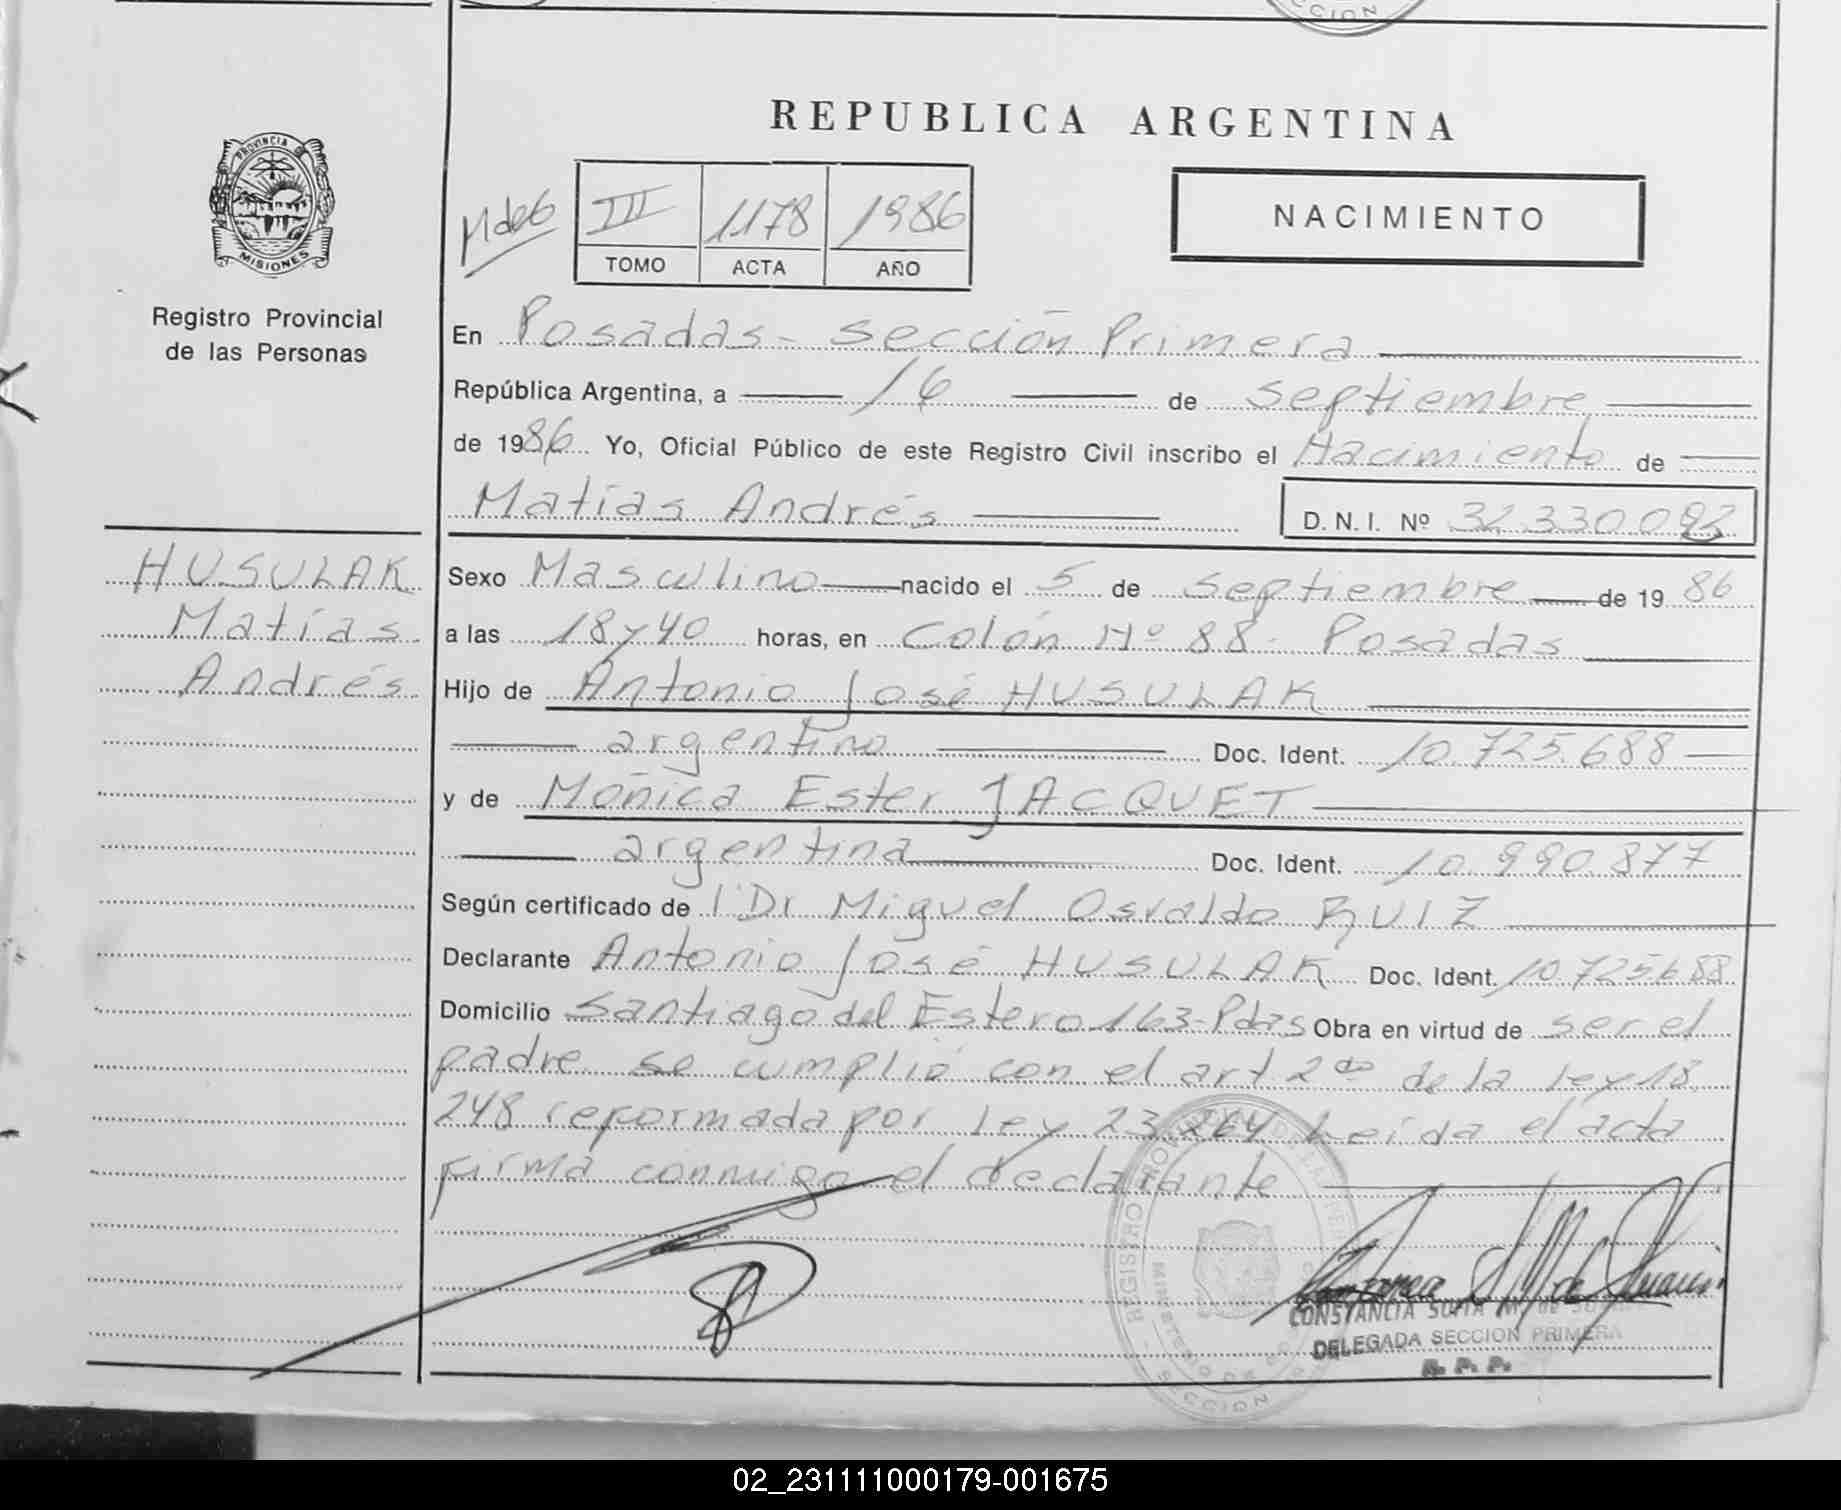 CCION
REPUBLICA ARGENTINA
PROVINCIA
MISIONES
Registro Provincial
de las Personas
III 1178 1986
TOMO ACTA AÑO
NACIMIENTO
En Posadas - Sección Primera
República Argentina, a 16 de septiembre
de 1986. Yo, Oficial Público de este Registro Civil inscribo el Nacimiento de
Matías Andrés D.N.I. Nº 32.330.092
HUSULAK
Matías
Andrés
Sexo Masculino nacido el 5 de septiembre de 1986
a las 18 y 40 horas, en Colón Nº 88 - Posadas
Hijo de Antonio José HUSULAK
argentino Doc. Ident. 10.725.688
y de Mónica Ester JACQUET
argentina Doc. Ident. 10.990.877
Según certificado de l Dr Miguel Osvaldo RUIZ
Declarante Antonio José HUSULAK Doc. Ident. 10.725.688
Domicilio Santiago del Estero 163-Pdas Obra en virtud de ser el
padre se cumplió con el art 2do de la ley 18
248 reformada por Ley 23.264 Leída el acta
firma conmigo el declarante
CONSTANCIA SOFIA M. de
DELEGADA SECCION PRIMERA
R. P. P.
REGISTRO PROVINCIAL DE LAS PERSONAS
MINISTERIO DE GO
SECCION
02_231111000179-001675